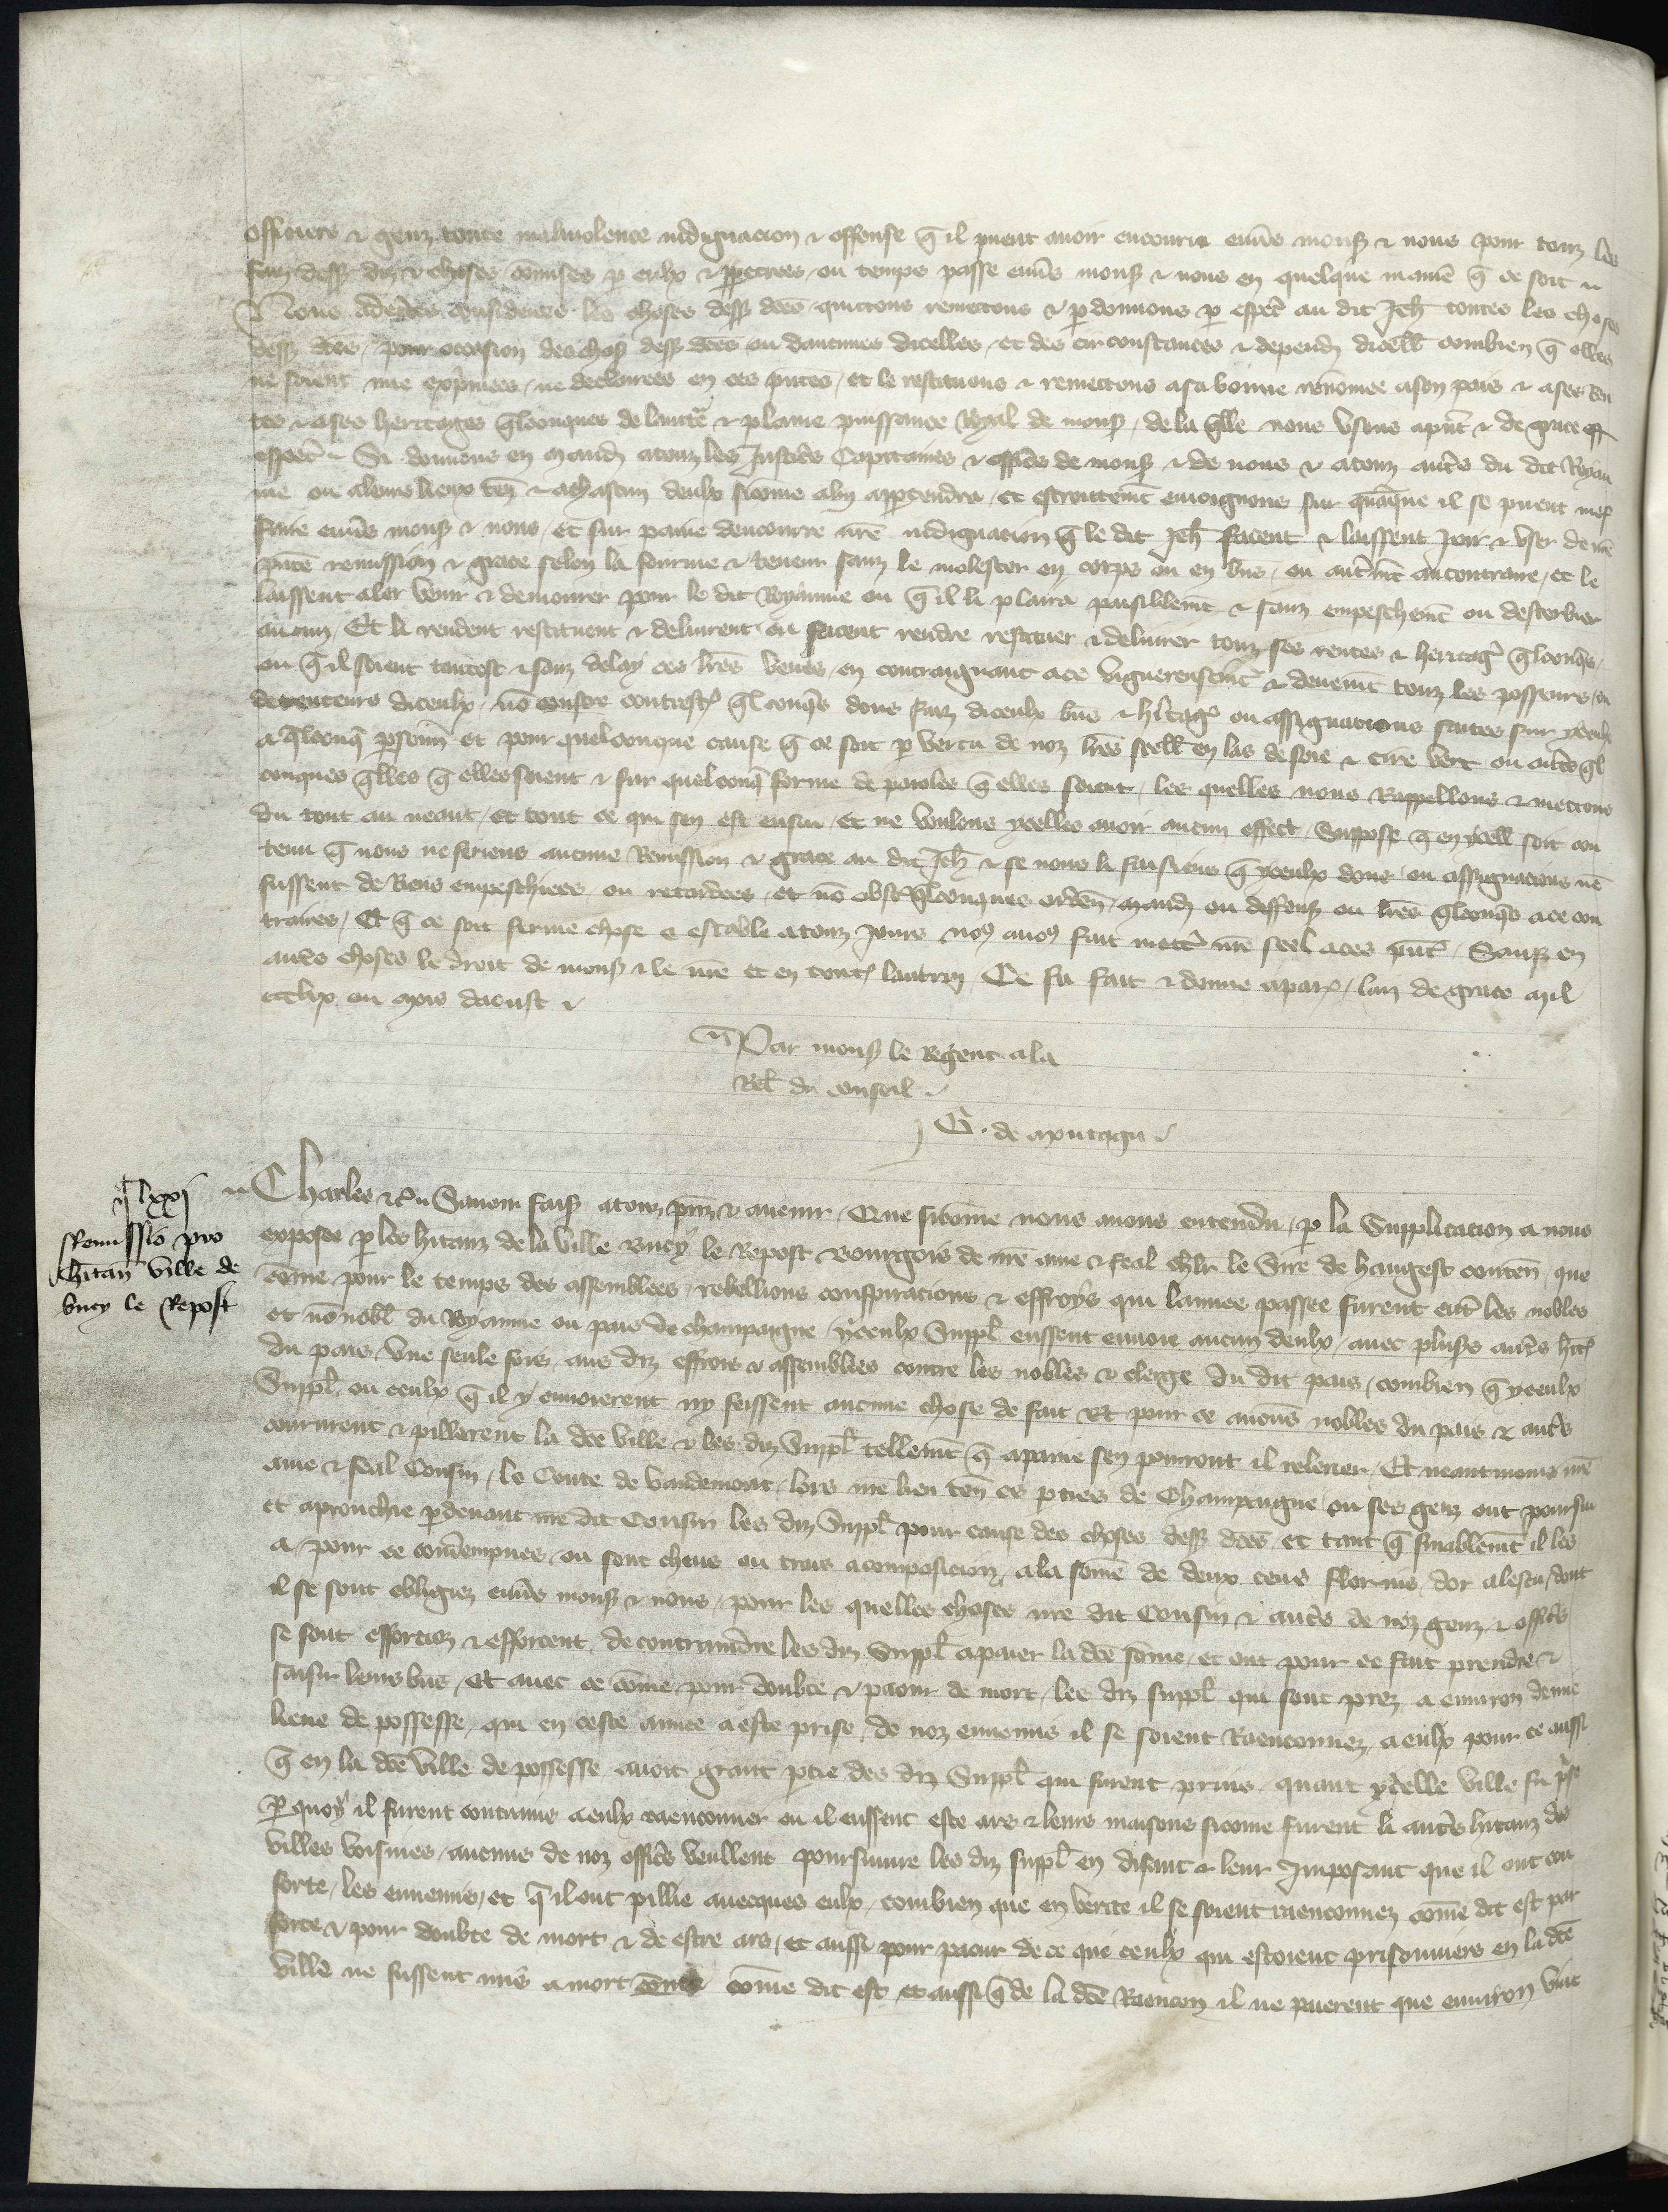 officiers & genz toute malivolence indignacion & offense q̃ il puent avoir encouru envs̃ mons̃ & nous pour touz les
faiz dess̃ diz & choses cõmises p eulx & ppetrees ou temps passe envs̃ mons̃ & nous en quelque maniẽ q̃ ce soit
Nous adcẽrtes considerees les choses dess̃ dc̃es quictons remettons & pdonnons p esp̃cl au dit Jeh̃ toutes les choses
dess̃ dc̃es pour occasion des chos̃ dess̃ dc̃es ou daucunes dicelles et des circonstances & depend̃ dicell̃ combien q̃ elles
ne soient mie exp̃mees ne declarees en ces p̃ntes et le restituons & remettons a sa bonne renõmee a son pais & a ses ren
tes & a ses heritages q̃lconques de lauctẽ & plaine puissance Royal de mons̃ de la q̃lle nous usons a p̃nt & de grace
esp̃cl Si donnons en mand̃ a touz les Justic̃s Capitaines & offic̃s de mons̃ & de nous & a touz autr̃s du dit Royau
me ou a leurs lieux teñ & a chascun deulx sicõme a luy appartendra et estroittem̃t enioignons sur quãque il se puent mes̃
faire envs̃ mons̃ & nous et sur paine dencourre nr̃e indignation q̃ le dit Jeh̃ facent & laissent joir & user de nr̃e
p̃nte remission & grace selon la fourme & teneur sanz le molester en corps ou en biẽs ou autrem̃t au contraire et le
laissent aler venir & demourer pour le dit Royaume ou q̃ il li plaira paisiblem̃t & sanz empeschem̃t ou destorbier
aucun Et li rendent restituent & delivrent ou facent rendre restituer & delivrer touz ses rentes & heritag̃ q̃lconq̃s
ou q̃ il soient tantost & sanz delay ces lr̃es veues en contraignant a ce viguereusem̃t & deuem̃t touz les posseurs ou
detenteurs diceulx nõ contrest̃ q̃lconq̃s dons faiz diceulx biẽs & hr̃itag̃ ou assignacions faites sur yceulx
a q̃lconq̃ psoñn et pour quelconque cause q̃ ce soit p vertu de noz lr̃es scell̃ en las de soie & cire vert ou autr̃s q̃l
conques q̃lles q̃ elles soient & sur quelconq̃ forme de paroles q̃ elles soient les quelles nous Rappellons & mettons
du tout au neant et tout ce qui sen est ensui Et ne voulons ycelles avoir aucun effect Suppose q̃ en ycell̃ soit con
tenu q̃ nous ne feriens aucune Remission & grace au dit Jeh̃ & se nous li faisiens q̃ yceulx dons ou assignacions nẽ
fussent de Riens empeschiees ou retardees et nõ obst̃ q̃lconques ordeñ mand̃ ou deffens̃ ou lr̃es q̃lconq̃s a ce con
traires Et q̃ ce soit ferme chose & estable a touz jours noꝰ avoꝰ fait mettr̃ nr̃e seel a ces p̃nt̃ Sauf̃ en
autr̃s choses le droit de mons̃ & le nr̃e et en tout̃ lautruy Ce fu fait & donne a paris lan de grace mil
ccclix ou mois daoust
Par mons̃ le Regent a la
Rel̃ du conseil
G. de montagu
iiijlxxj
Remissio pro
hr̃itañ ville de
bucy le Repost
Charles &c̃ Savoir fais̃ a touz p̃nz & avenir Que sicõme nous avons entendu p la Supplicacion a nous
exposee p les hr̃itanz de la ville Bucy le Repost Bourgois de nr̃e ame & feal chlr̃ le Sire de hangest conteñ que
cõme pour le temps des assemblees rebellions conspiracions & effroys qui lannee passee furent entr̃ les nobles
et nõ nobl̃ du Royaume ou pais de champaigne yceulx Suppl̃ eussent envoie aucun deulx avec plus̃s autr̃s hit̃
du pais une seule fois aus diz effrois & assemblees contre les nobles & clerge du dit pais combien q̃ yceulx
Suppl̃ ou ceulx q̃ il y envoierent ny feissent aucune chose de fait Et pour ce aucuns nobles du pais & autr̃s
coururent & pillerent la dc̃e ville & les diz Suppl̃ tellem̃t q̃ a paine sen pourront il relever Et neantmoins nr̃e
ame & feal Cousin le Conte de vaudemont lors nr̃e lieu teñ es pties de Champaigne ou ses genz ont poursui
et aprouchie pdevant nr̃e dit Cousin les diz Suppl̃ pour cause des choses dess̃ dc̃es et tant q̃ finablem̃t il les
a pour ce condempnes ou sont cheus ou trais a composicion a la sõme de deux cens florins dor a lescu dont
il se sont obligiez envs̃ mons̃ & nous pour les quelles choses nr̃e dit Cousin & autr̃s de noz genz & offic̃s
se sont efforciez & efforcent de contraindre les diz Suppl̃ a paier la dc̃e sõme et ont pour ce fait prendre &
saisir leurs biẽs Et avec ce cõme pour doubte & paour de mort les diz suppl̃ qui sont prez a environ demie
lieue de possesse qui en ceste annee a este prise de noz ennemis il se soient Raenconnez a eulx pour ce aussi
q̃ en la dc̃e ville de possesse avoit grant ptie des diz Suppl̃ qui furent prins quant ycelle ville fu p̃se
P quoy il furent contrains a eulx raenconner ou il eussent este ars & leurs maisons sicõme furent li autr̃s hitanz des
villes voisines aucuns de noz offic̃s veullent poursuivre les diz suppl̃ en disant & leur Imposant que il ont con
forte les ennemis et q̃ il ont pillie avecques eulx combien que en verite il se soient raenconnez cõme dit est par
force & pour doubte de mort & de estre ars et aussi pour paour de ce que ceulx qui estoient prisonniers en la dc̃e
ville ne fussent mis a mort cõme dit est et aussi q̃ de la dc̃e Raencon il ne paierent que environ vint